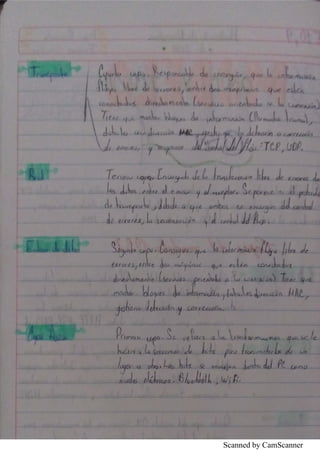 Transporte
Cuarta capa. Responsable de conseguir, que la información
fluya libre de errores, entre dos máquinas que estén
conectadas directamente (servicio orientado a la conexión)
Tiene que montar bloques de información (llamados tramas),
dirección MAC, la detección o corrección
de errores, y del control del flujo: TCP, UDP.
Red
Tercera capa. Encargada de la transferencia libre de errores de
los datos entre el emisor y el receptor.
de transporte, debido a que ambos se encargan del control
de errores, la y el control del flujo.
Enlace de datos
Segunda capa. Consigue que la información fluya libre de
errores, entre dos máquinas que estén conectadas
directamente (servicio orientado a la conexión) Tiene que
montar bloques de información, dirección MAC,
gestiona detección y corrección.
Capa física
Primera capa. Se refiere a la transformación que se le
hacen a la secuencia de bits para transmitirlos de un
lugar a otro, los bits se manejan dentro del PC como
niveles eléctricos. Bluetooth, WiFi.
Scanned by CamScanner